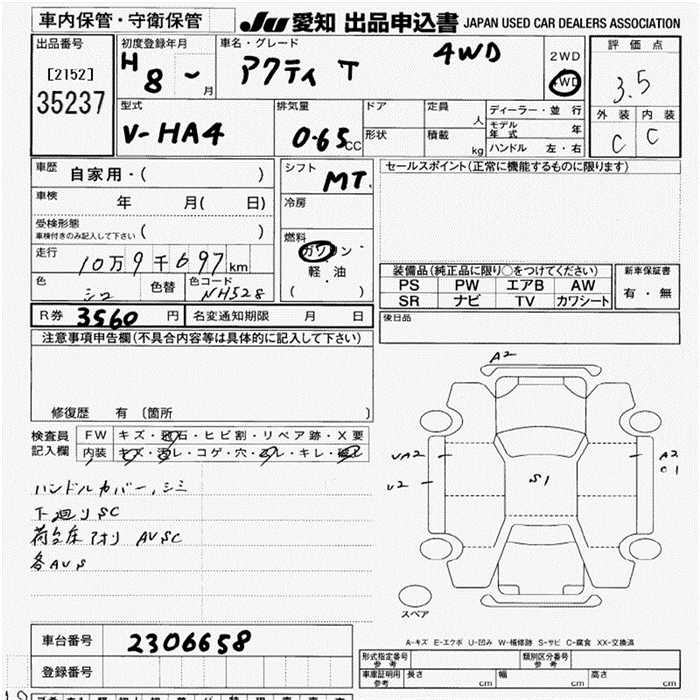 車内保管・守衛保管
JU 愛知 出品申込書 JAPAN USED CAR DEALERS ASSOCIATION
出品番号
[2152]
35237
初度登録年月
H 8 ~ 月
車名・グレード
アクティ T 4WD
2WD
4WD
評価点
3.5
外装 内装
C C
型式
V-HA4
排気量
0.65 CC
ドア
形状
定員 人
積載 kg
ディーラー・並行
モデル年式 年
ハンドル 左・右
車歴 自家用・( )
車検 年 月( 日)
受検形態
車検付きのみ記入して下さい ( )
走行 10万9千697km
色 シロ 色替 色コード NH528
シフト MT
冷房
燃料
ガソリン
・
軽油
( )
セールスポイント(正常に機能するものに限ります)
装備品(純正品に限り○をつけてください)
PS PW エアB AW
SR ナビ TV カワシート
新車保証書
有・無
後日品
R券 3560 円 名変通知期限 月 日
注意事項申告欄(不具合内容等は具体的に記入して下さい)
修復歴 有 〔箇所 〕
検査員記入欄
FW キズ・飛石・ヒビ割・リペア跡・X要
内装 キズ・汚レ・コゲ・穴・スレ・キレ・
ハンドルカバー、シミ
下廻りSC
荷台床アオリ AVSC
各AVS
A2
UA2
U2
S1
A2
C1
スペア
A-キズ E-エクボ U-凹み W-補修跡 S-サビ C-腐食 XX-交換済
車台番号 2306658
登録番号
形式指定番号 参考
類別区分番号 参考
車庫証明用 参考 長さ cm 幅 cm 高さ cm